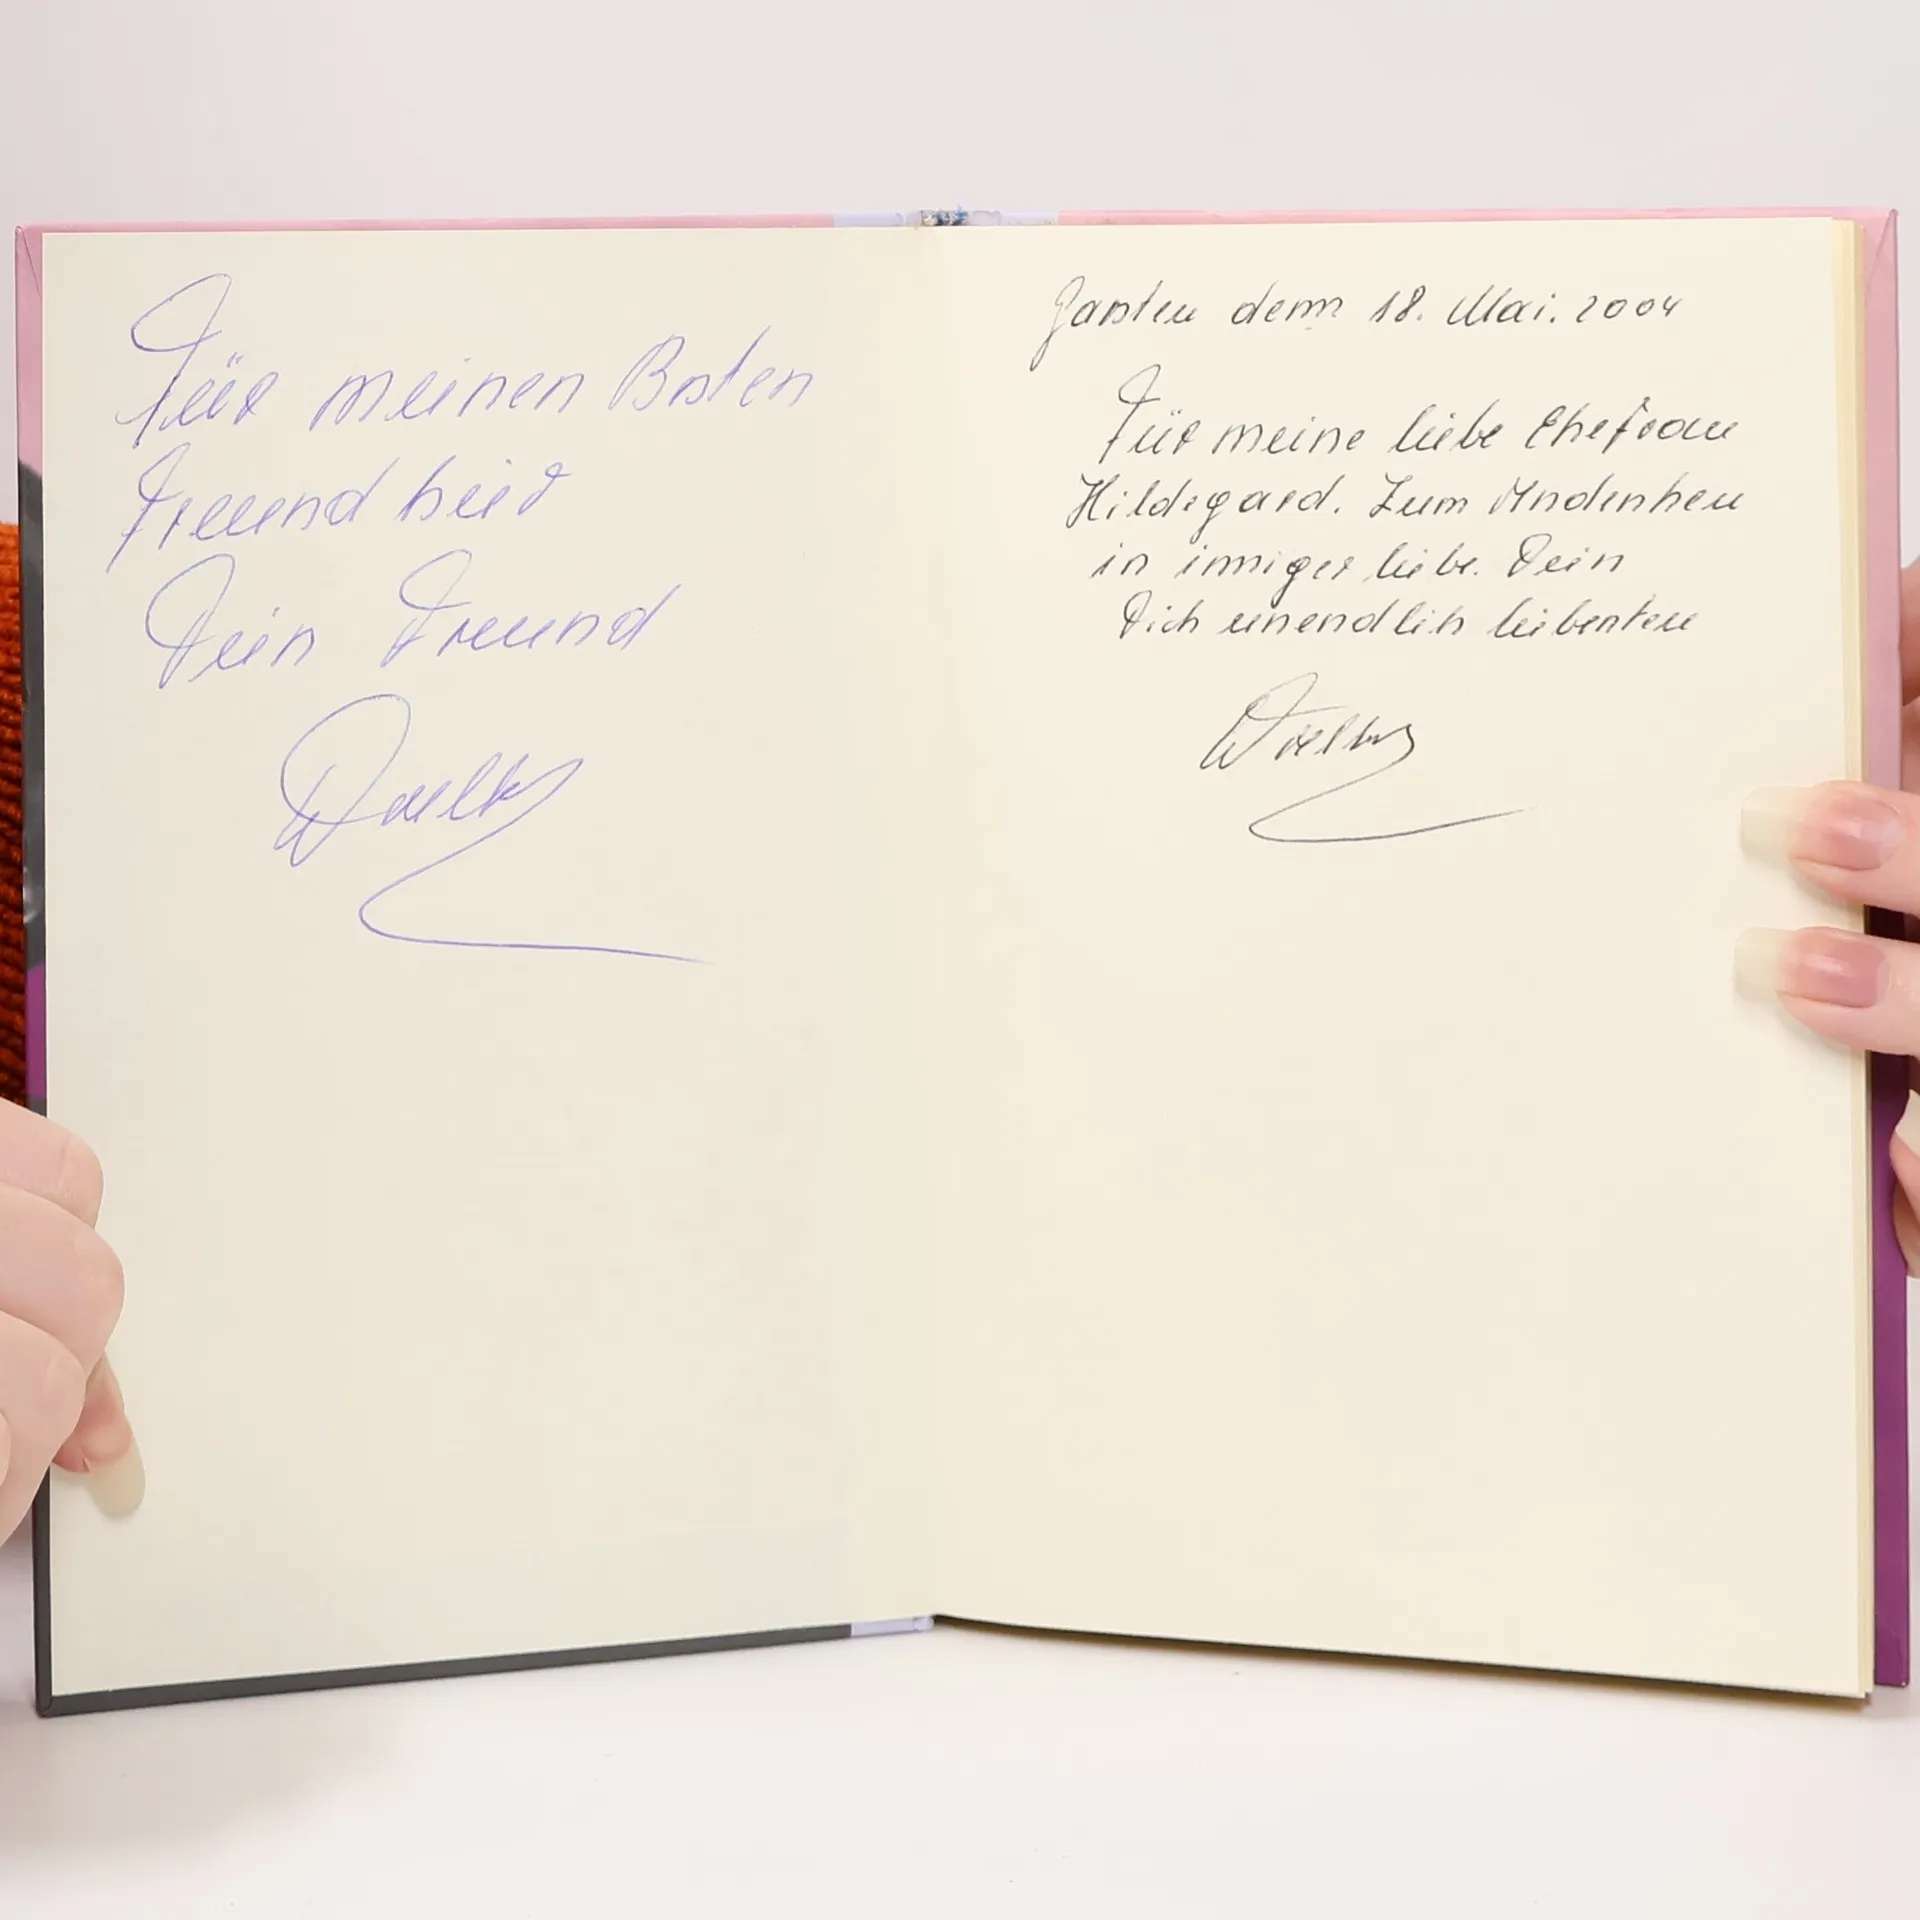 Für meinen Besten
Freund
Dein Freund
denn 18. Mai. 2004
Für meine liebe Ehefrau
Hildegard. Zum Andenken
in inniger liebe. Dein
Dich unendlich liebenten